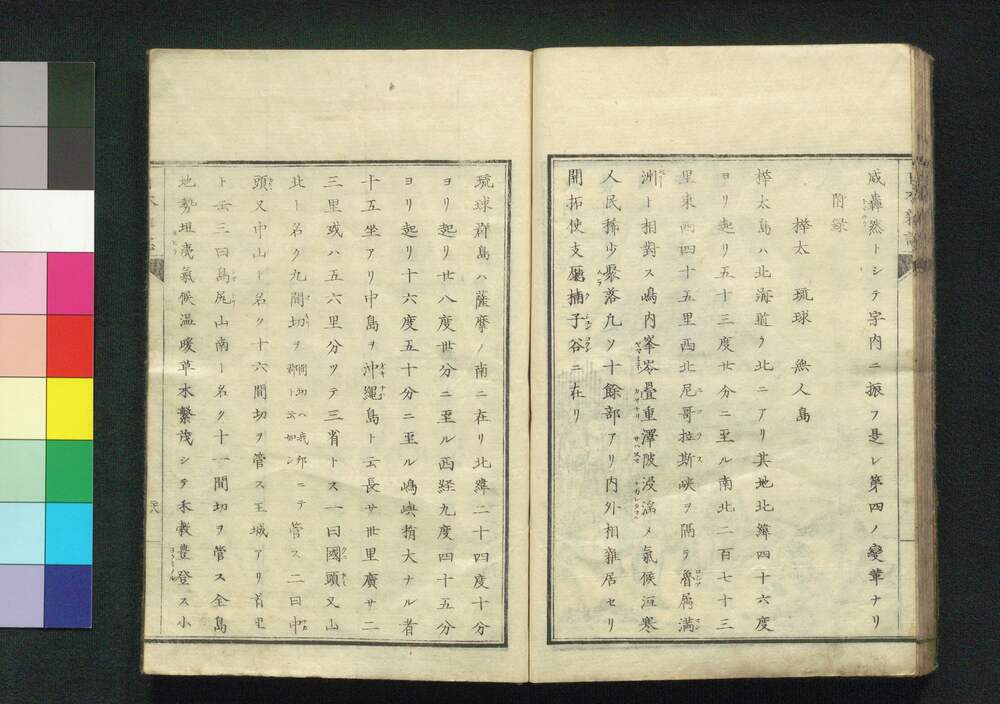 威轟然トシテ宇内ニ振フ是レ第四ノ變革ナリ
附録
樺太 琉球 無人島
樺太島ハ北海道ク北ニアリ其地北緯四十六度
ヨリ起リ五十三度廿分ニ至ル南北二百七十三
里東西四十五里西北尼哥拉斯峡ヲ隔テ魯属満
洲ト相對ス嶋内峯岑疊重澤陂浸滀メ氣候沍寒
人民稀少聚落凡ソ十餘部アリ内外相雜居セリ
開拓使支廳楠子谷ニ在リ
琉球群島ハ薩摩ノ南ニ在リ北緯二十四度十分
ヨリ起リ廿八度丗分ニ至ル西経九度四十五分
ヨリ起リ十六度五十分ニ至ル嶋嶼稍大ナル者
十五坐アリ中島ヲ沖縄島ト云長サ丗里廣サ二
三里或ハ五六里分ツテ三省トス一曰國頭又山
北ト名ク九間切ヲ 間切ハ我邦ニテ郡ト云如シ 管ス二曰中
頭又中山ト名ク十六間切ヲ管ス王城アリ首里
ト云三曰島尻山南ト名ク十一間切ヲ管ス全島
地勢坦夷氣候温暖草木繁茂シテ禾穀豊登ス小